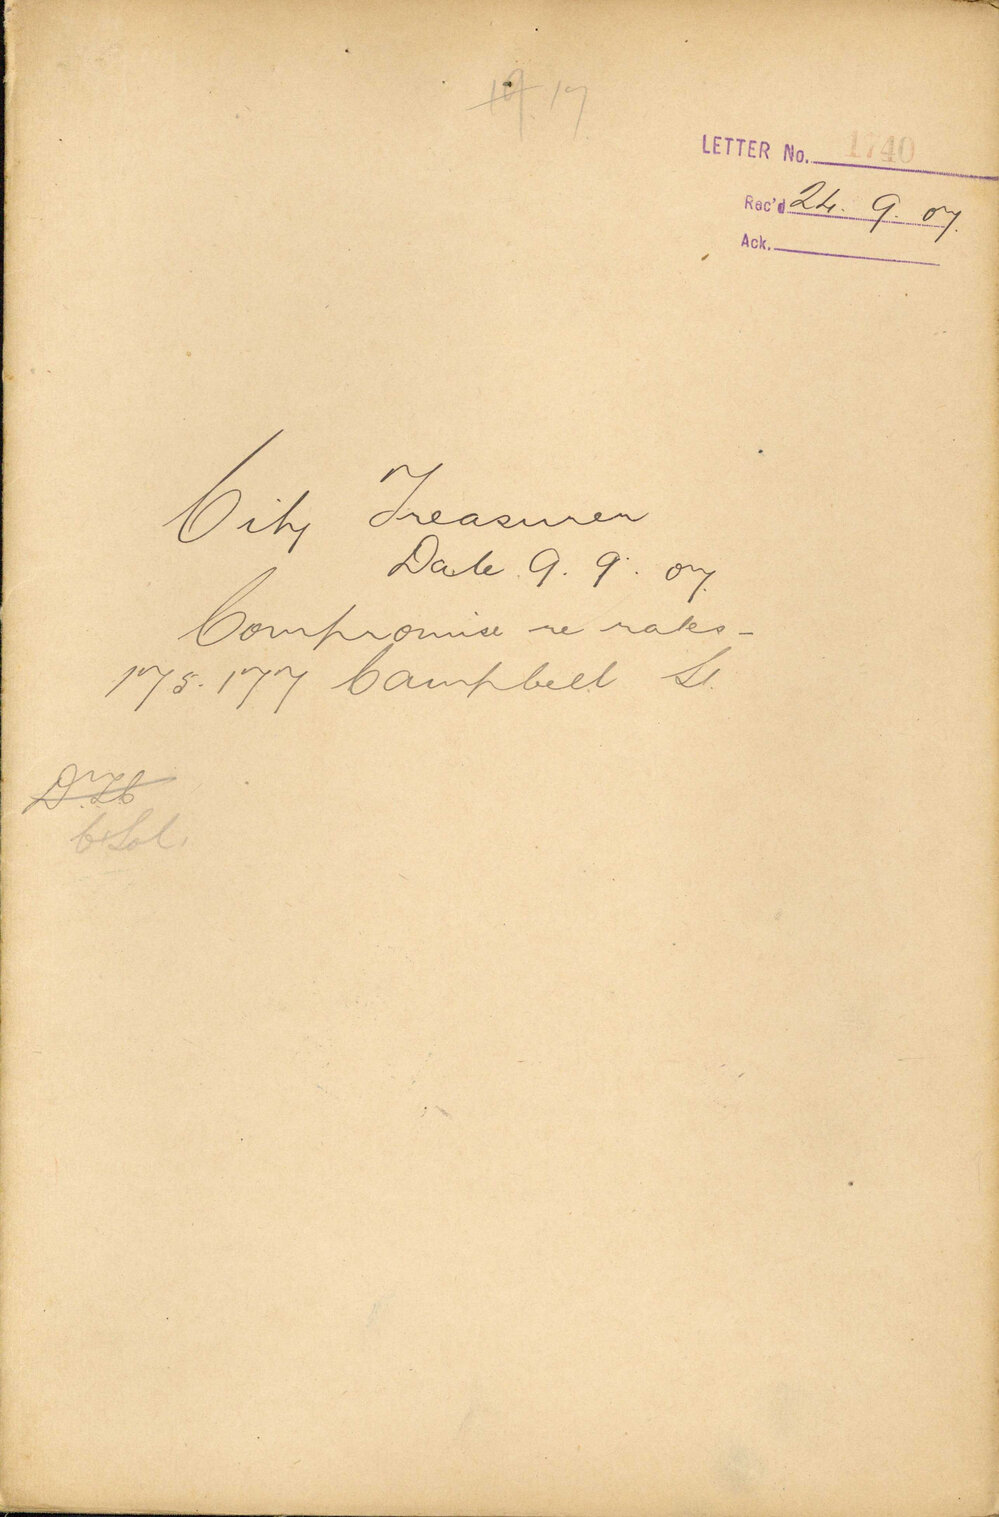 19.17
LETTER No. 1740
Rec'd 24. 9. 07.
Ack.
City Treasurer
Date 9. 9. 07.
Compromise re rates -
175-177 Campbell St.
C Sol.